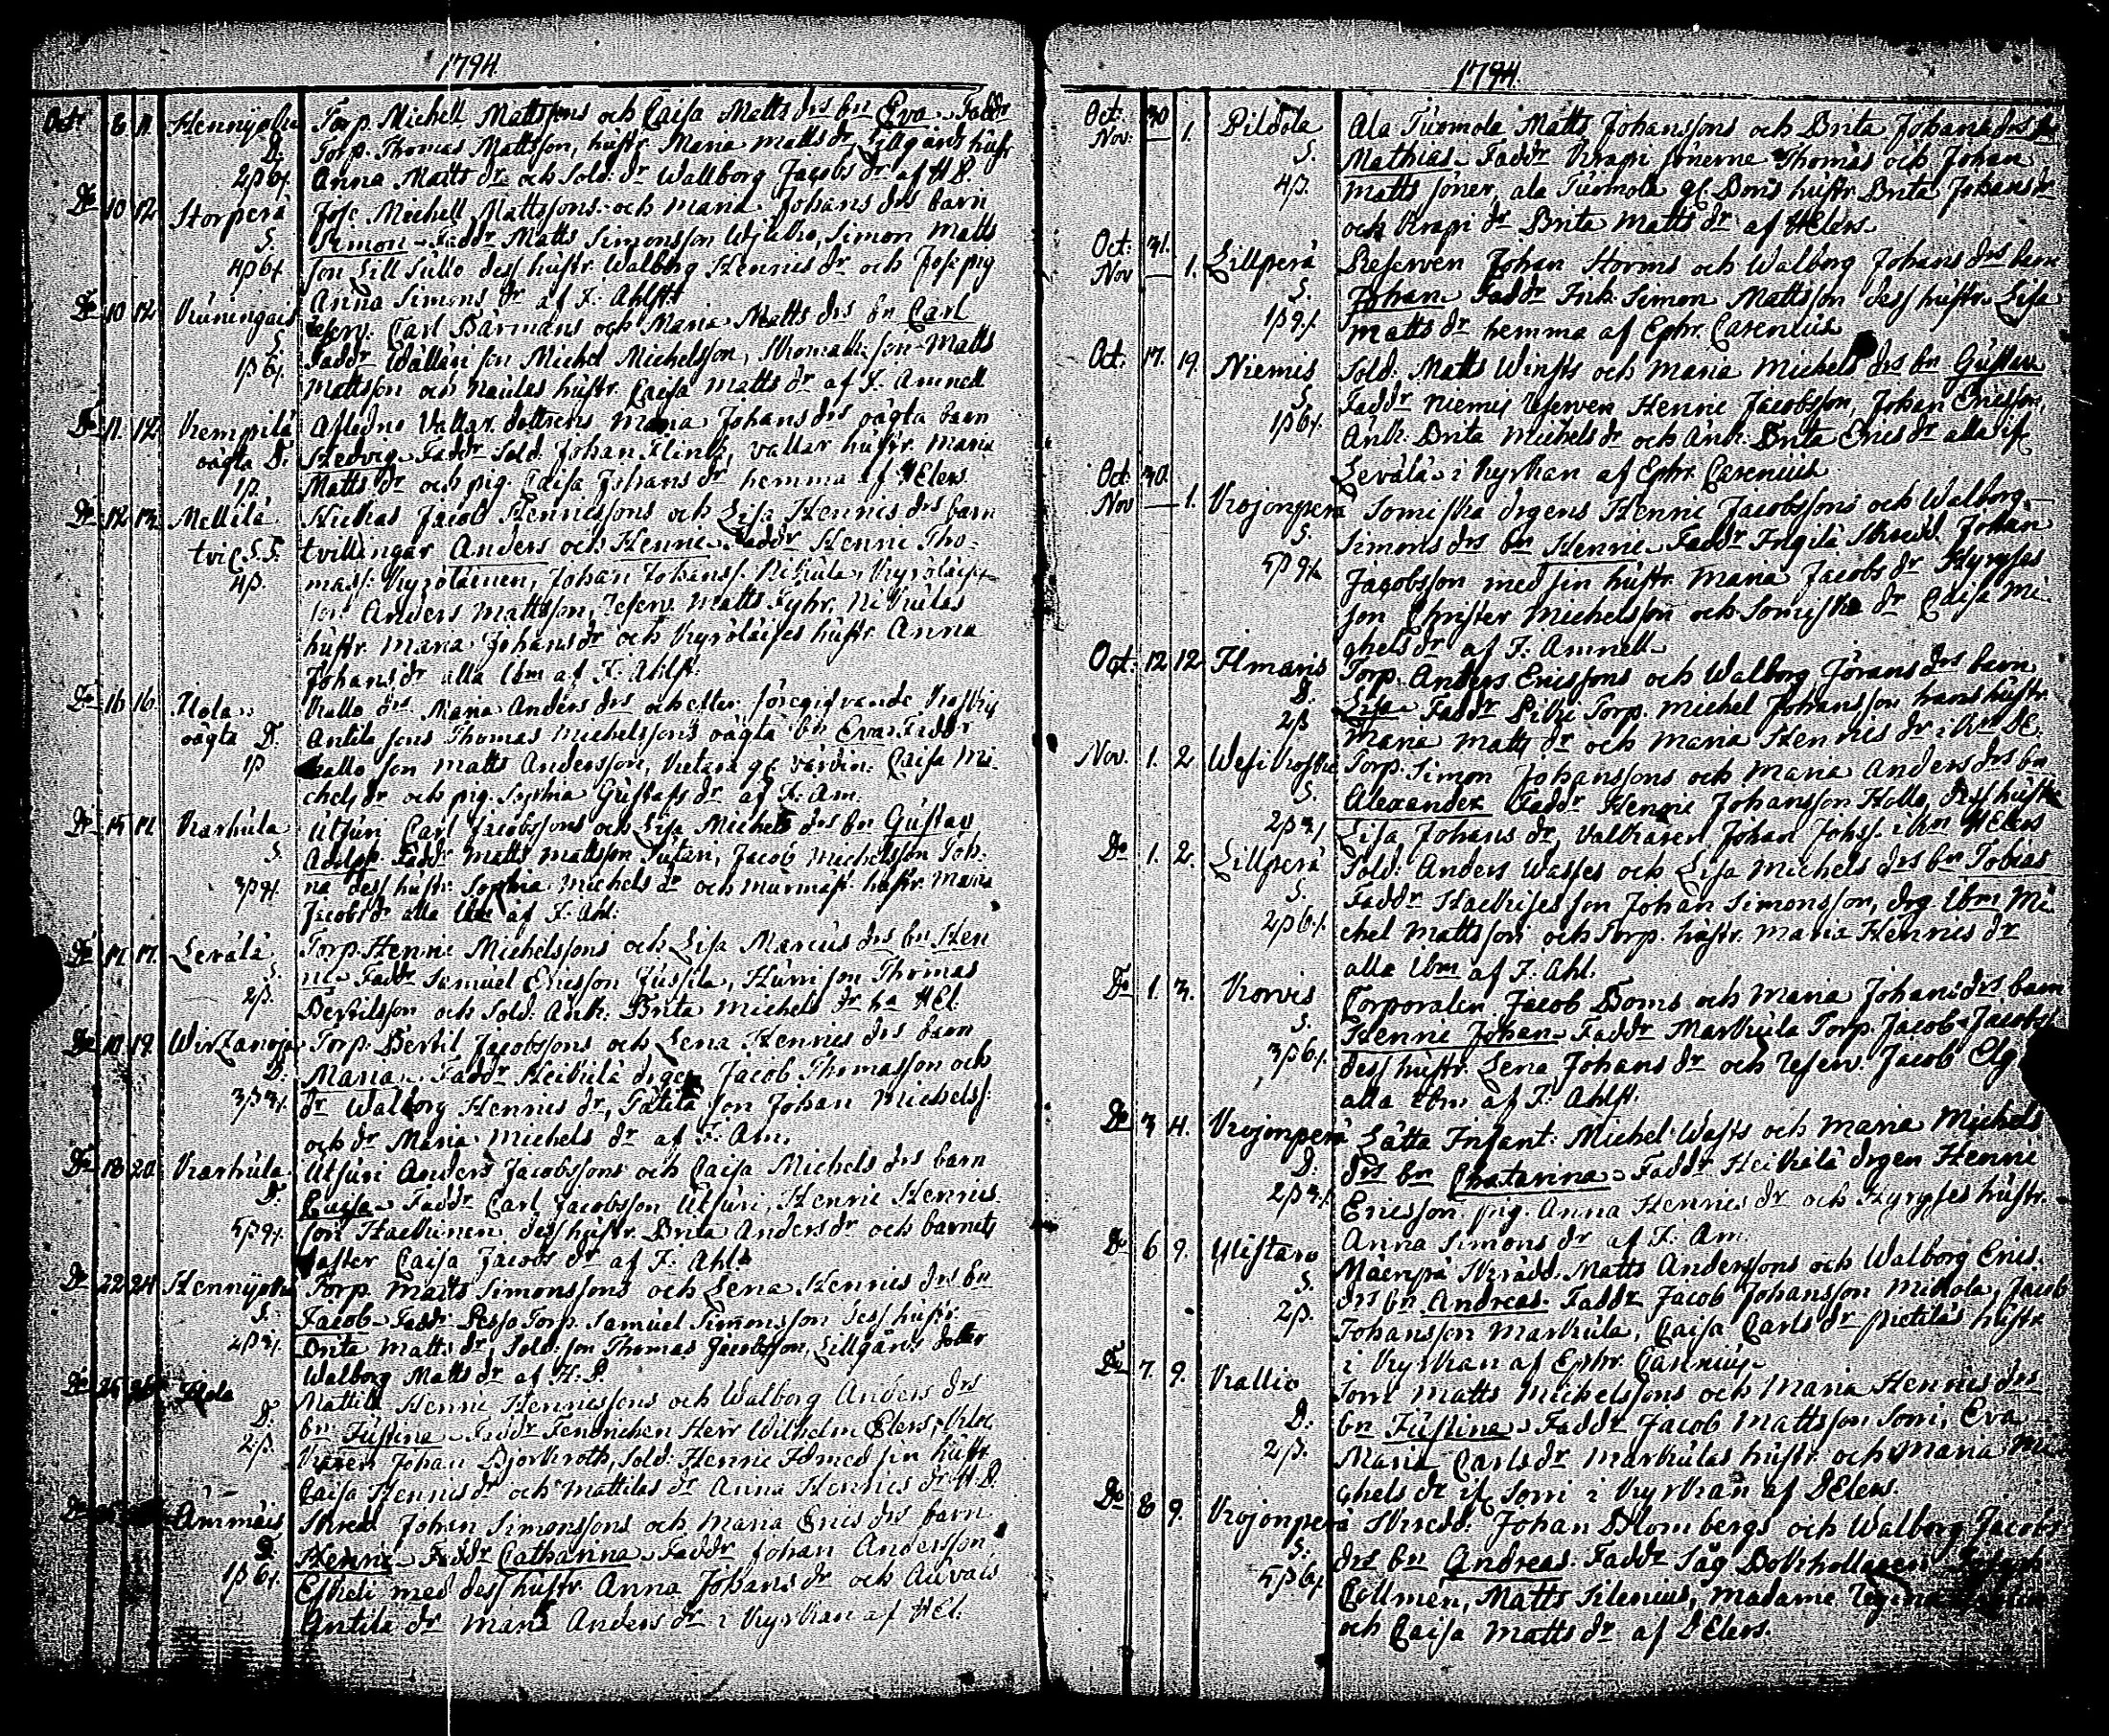 1794.
Oct: 6 11. Hennijoki Torp. Michell Mattssons och Caisa Matts drs bn Eva. Faddr
D. Torp. Thomas Mattsson, hustr. Maria Matts dr, Lillgårds hustr
2ß 6/. Anna Matts dr och Sold: dr Wallborg Jacobs dr af HD.
Do 10 12 Storperä Jose Michell Mattssons och Maria Johans drs barn
S. Simon. Faddr Matts Simonsson, Simon Matts
4ß 6/. son Lill Sullo dess hustr. Walborg Hennies dr och pig
Anna Simons dr af F. Ahlst:
Do 10 12 Reserv. Carl Bärmans och Maria Matts drs bn Carl
S. Faddr Wallari son Michel Michelsson, son Matts
1ß 6/. Mattsson och Naulas hustr. Caisa Matts dr af F. Amnell
Do 11. 12 Kempilä Vallar dottrens Maria Johans drs oägta barn
oägta D. Hedvig. Faddr Sold. Johan Flink, vallar hustr. Maria
1ß. Matts dr och pig. Caisa Johans dr hemma af HElers.
Do 12 13. Mellilä Jacob Hennissons och Lisa Hennis drs barn
tvil. S.S. tvillingar Anders och Henric. Faddr Henric Tho-
4ß. mass. Kyröläinen, Johan Johanss.
son Anders Mattsson, Reserv. Matts Fyhr,
hustr. Maria Johans dr och Kyröläises hustr. Anna
Johans dr alla ibm af F. Ahlst:
Do 16 16 Ilola Kallo drs Maria Anders drs och efter föregifvande
oägta D. Antila sons Thomas Michelssons oägta bn Eva. Faddr
1ß Kallo son Matts Andersson, Caisa Mi-
chels dr och pig. Sophia Gustafs dr af F. Am.
Do 15 17. Karhula Utsuri Carl Jacobssons och Lisa Michels drs bn Gustav
S. Adolph. Faddr Matts Mattsson Sutari, Jacob Michelsson
3ß 9/. dess hustr. Sophia Michels dr och hustr. Maria
Jacobs dr alla ibm af F. Ahl:
Do 17. 17. Levälä Torp. Henric Michelssons och Lisa Marcus drs bn Hen
S. ric. Faddr Samuel Ericsson Jussila, Hurri son Thomas
2ß. Bertilsson och Sold: Änk: Brita Michels dr HEl.
Do 18 19. Wirzanoja Torp. Bertil Jacobssons och Lena Hennis drs barn
D. Maria. Faddr Heikilä drgen Jacob Thomasson och
3ß 3/. dr Walborg Hennis dr, Tatila son Johan Michelss:
och dr Maria Michels dr af F. Am.
Do 18 20. Karhula Utsuri Anders Jacobssons och Caisa Michels drs barn
D. Caisa. Faddr Carl Jacobsson Utsuri, Henric Hennics
5ß 9/. son Hackinen dess hustr. Brita Anders dr och barnets
faster Caisa Jacobs dr af F. Ahl:
Do 22 24 Hennijoki Torp. Matts Simonssons och Lena Hennics drs bn
S. Jacob. Faddr Torp. Samuel Simonsson dess hustr.
2ß 3/. Brita Matts dr, Sold: son Thomas Jacobsson, Lillgårds dotter
Walborg Matts dr af H.D.
Do Ilola Mattila Henric Hennicssons och Walborg Anders drs
D. bn Justina. Faddr Fendricken Herr Wilhelm Elers, Kloc
2ß. karen Johan Björkroth, Sold: Henric med sin hustr
Caisa Hennis dr och Mattilas dr Anna Hennics dr H.D.
Do Ämmäis Skred. Johan Simonssons och Maria Erics drs barn
D. Henric. Faddr Catharina. Faddr Johan Andersson
1ß 6/. Eskeli med dess hustr. Anna Johans dr och Auvais
Antila dr Maria Anders dr i Kyrkan af HEl.
1794.
Oct. 30
Nov: — 1. Pildola Ala Tuomola Matts Johanssons och Brita Johans drs
S. Mathias. Faddr Krapi sönerne Thomas och Johan
4ß. Matts söner, ala Tuomola hustr. Brita Johans dr
och Krapi dr Brita Matts dr af HElers.
Oct: 31.
Nov — 1. Lillperä Reserven Johan Storms och Walborg Johans drs barn
S. Johan. Faddr Inh. Simon Mattsson dess hustr. Lisa
1ß 9/. Matts dr hemma af Ephr. Carenius.
Oct. 17. 19. Niemis Sold: Matts Winsts och Maria Michels drs bn Gustav
S. Faddr Niemis Reserven Henric Jacobsson, Johan Ericsson,
1ß 6/. Änk. Brita Michels dr och Änk. Brita Erics dr alla if.
Levälä i Kyrkan af Ephr. Carenius.
Oct 30.
Nov — 1. Kojonperä Somiska drgens Henric Jacobssons och Walborg
S. Simons drs bn Henric. Faddr Ingilä Skredd. Johan
5ß 9/. Jacobsson med sin hustr. Maria Jacobs dr
son Christer Michelsson och Somiska dr Caisa Mi-
chels dr af F. Amnell.
Oct: 12 12 Ilmaris Torp. Anders Ericssons och Walborg Jörans drs barn
D. Lisa. Faddr Torp. Michel Johansson hans hustr.
2ß Maria Matts dr och Maria Hennis dr i Kn DE.
Nov. 1. 2. Wesikoski Torp. Simon Johanssons och Maria Anders drs bn
S. Alexander. Faddr Henric Johansson Hollo, dess hustr
2ß 3/. Lisa Johans dr, Johan Johss. i Kn HElers
Do 1. 2. Lillperä Sold: Anders Wasses och Lisa Michels drs bn Tobias
S. Faddr son Johan Simonsson, drg. ibm Mi-
2ß 6/. chel Mattsson och Torp. hustr. Maria Hennis dr
alla ibm af F. Ahl.
Do 1. 3. Korvis Corporalen Jacob Doms och Maria Johans drs barn
S. Henric Johan. Faddr Markula Torp. Jacob Jacobs
3ß 6/. dess hustr. Lena Johans dr och Reserv. Jacob Elg
alla ibm af F. Ahlst.
Do 3 4. Kojonperä Lätta Infant: Michel Wasts och Maria Michels
D. drs bn Chatarina. Faddr Heikilä drgen Henric
2ß 3/. Ericsson. pig. Anna Hennis dr och hustr.
Anna Simons dr af F. Am.
Do 6 9. Ylistaro Mäenpä Skrädd. Matts Anderssons och Walborg Erics
S. drs bn Andreas. Faddr Jacob Johansson Mikola, Jacob
2ß. Johansson Markula, Caisa Carls dr Pietiläs hustr
i Kyrkan af Ephr. Carenius.
Do 7. 9. Kallio Sorri Matts Michelssons och Maria Hennis drs
D. bn Justina. Faddr Jacob Mattsson Sorri, Eva
2ß. Maria Carls dr Markulas hustr. och Maria Mi
chels dr if. Sorri i Kyrkan af DElers.
Do 8 9. Kojonperä Skredd: Johan Blombergs och Walborg Jacobs
S. drs bn Andreas. Faddr Såg Bokhollaren
5ß 6/. Collmén, Matts Silenius, Madame Regina
och Caisa Matts dr af DElers.